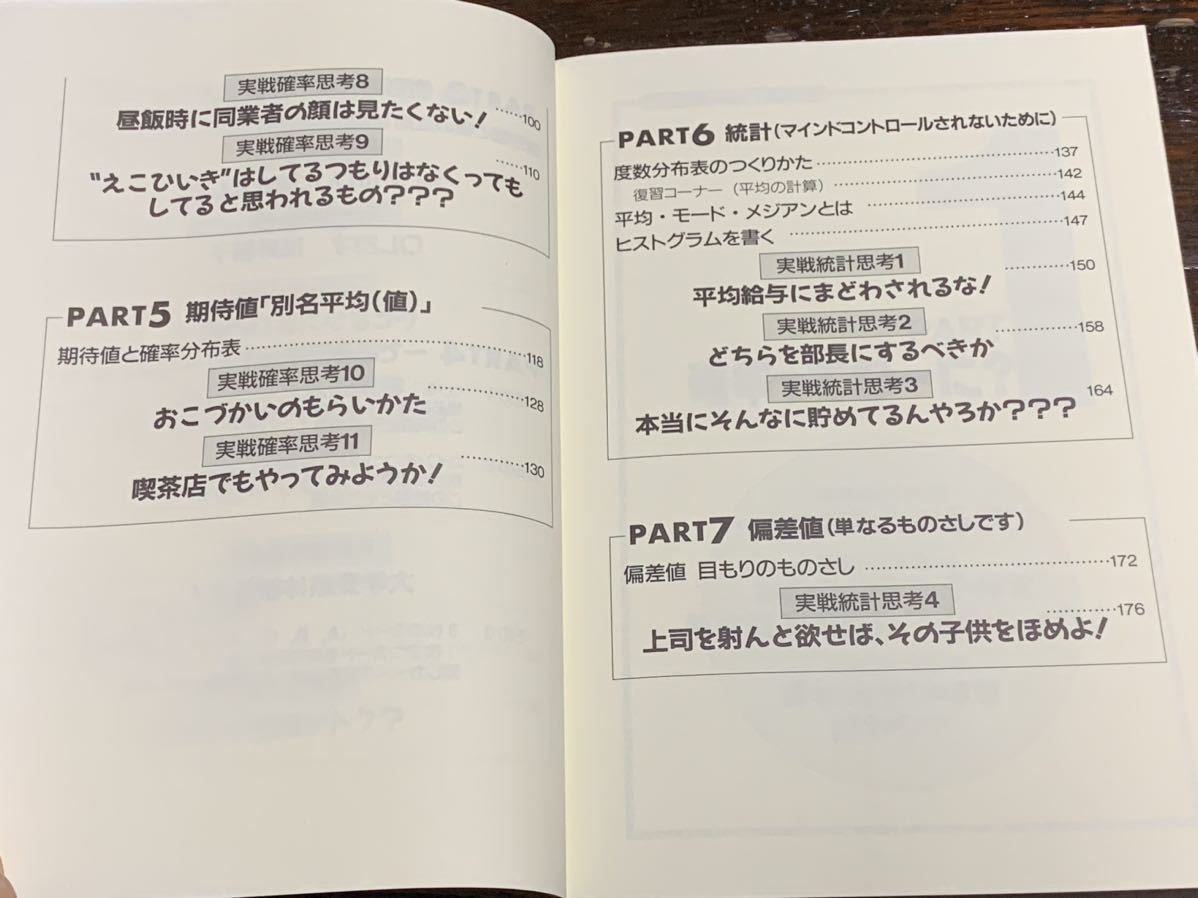 実戦確率思考8
昼飯時に同業者の顔は見たくない! ……100
実戦確率思考9
"えこひいき"はしてるつもりはなくっても ……110
してると思われるもの???
PART5 期待値「別名平均(値)」
期待値と確率分布表……………………………118
実戦確率思考10
おこづかいのもらいかた …………128
実戦確率思考11
喫茶店でもやってみようか! …………130
PART6 統計(マインドコントロールされないために)
度数分布表のつくりかた……………………………137
復習コーナー(平均の計算)……………………………142
平均・モード・メジアンとは ……………………………144
ヒストグラムを書く ……………………………147
実戦統計思考1
平均給与にまどわされるな! …………150
実戦統計思考2
どちらを部長にするべきか …………158
実戦統計思考3
本当にそんなに貯めてるんやろか??? 164
PART7 偏差値(単なるものさしです)
偏差値 目もりのものさし ……………………………172
実戦統計思考4
上司を射んと欲せば、その子供をほめよ! …………176